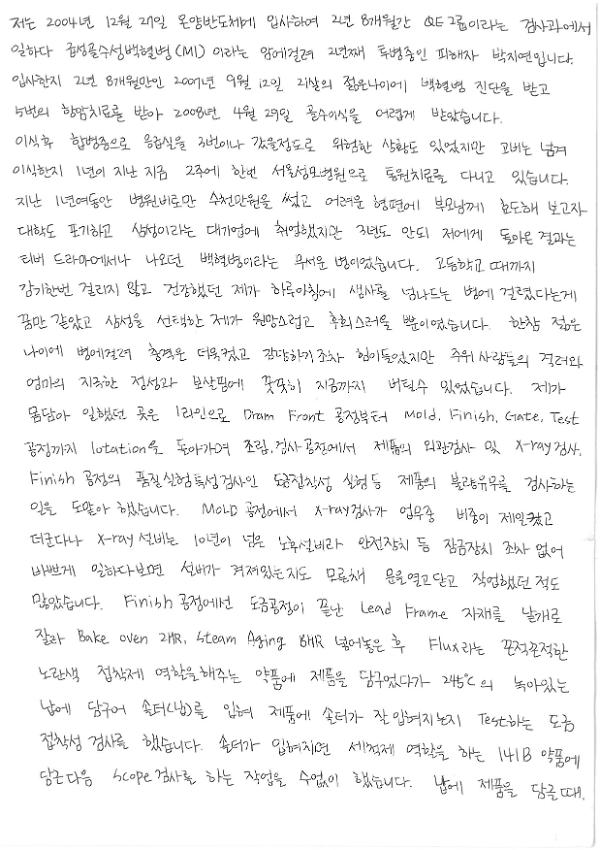 저는 2004년 12월 27일 온양반도체에 입사하여 2년 8개월간 QE 2그룹이라는 검사과에서
일하다 급성골수성백혈병(M1) 이라는 암에걸려 2년째 투병중인 피해자 박지연입니다.
입사한지 2년 8개월만인 2007년 9월 12일 21살의 젊은나이에 백혈병 진단을 받고
5번의 항암치료를 받아 2008년 4월 29일 골수이식을 어렵게 받았습니다.
이식후 합병증으로 응급실을 3번이나 갔을정도로 위험한 상황도 있었지만 고비는 넘겨
이식한지 1년이 지난 지금 2주에 한번 서울성모병원으로 통원치료를 다니고 있습니다.
지난 1년여동안 병원비로만 수천만원을 썼고 어려운 형편에 부모님께 효도해 보고자
대학도 포기하고 삼성이라는 대기업에 취업했지만 3년도 안되 저에게 돌아온 결과는
티비 드라마에서나 나오던 백혈병이라는 무서운 병이었습니다. 고등학교 때까지
감기한번 걸리지 않고 건강했던 제가 하루아침에 생사를 넘나드는 병에 걸렸다는게
꿈만 같았고 삼성을 선택한 제가 원망스럽고 후회스러울 뿐이었습니다. 한참 젊은
나이에 병에걸려 충격은 더욱컸고 감당하기조차 힘이들었지만 주위 사람들의 격려와
엄마의 지극한 정성과 보살핌에 꿋꿋히 지금까지 버틸수 있었습니다. 제가
몸담아 일했던 곳은 1라인으로 Dram Front 공정부터 Mold, Finish, Gate, Test
공정까지 lotation을 돌아가며 조립,검사공전에서 제품의 외관검사 및 X-ray검사,
Finish 공정의 품질실험특성검사인 도금접착성 실험등 제품의 불량유무를 검사하는
일을 도맡아 했습니다. MOLD 공정에서 X-ray검사가 업무중 비중이 제일컸고
더군다나 X-ray 설비는 10년이 넘은 노후설비라 안전장치 등 잠금장치 조차 없어
바쁘게 일하다보면 설비가 켜져있는지도 모른채 문을열고닫고 작업했던 적도
많았습니다. Finish 공정에선 도금공정이 끝난 Lead Frame 자재를 낱개로
잘라 Bake oven 2HR, Steam Aging 8HR 넣어놓은 후 Flux라는 끈적끈적한
노란색 접착제 역할을해주는 약품에 제품을 담구었다가 245℃의 녹아있는
납에 담구어 솔더(납)를 입혀 제품에 솔더가 잘입혀지는지 Test하는 도금
접착성 검사를 했습니다. 솔더가 입혀지면 세척제 역할을 하는 141B 약품에
담근다음 Scope검사를 하는 작업을 수없이 했습니다. 납에 제품을 담글때,